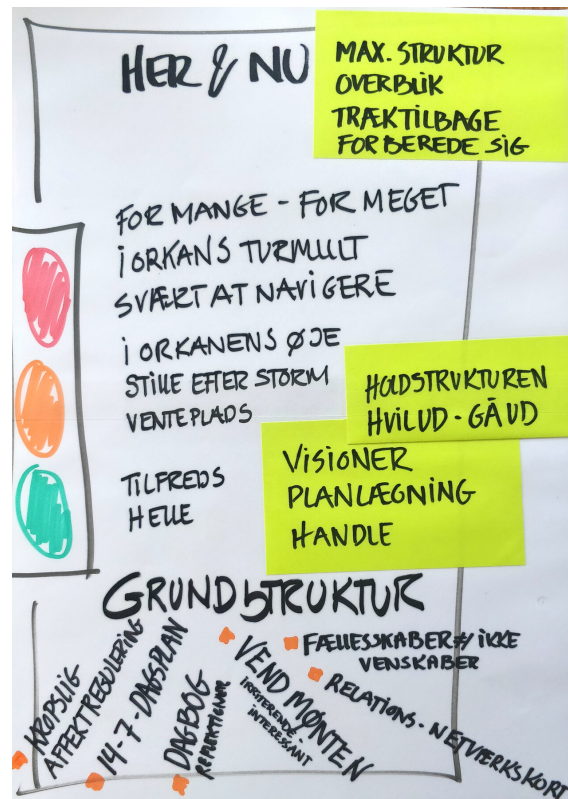 HER & NU
MAX. STRUKTUR
OVERBLIK
TRÆKTILBAGE
FORBEREDE SIG
FOR MANGE - FOR MEGET
I ORKANS TURMULT
SVÆRT AT NAVIGERE
I ORKANENS ØJE
STILLE EFTER STORM
VENTEPLADS
HOLDSTRUKTUREN
HVIL UD - GÅ UD
TILFREDS
HELLE
VISIONER
PLANLÆGNING
HANDLE
GRUNDSTRUKTUR
KROPSLIG
AFFEKTREGULERING
14-7-DAGSPLAN
DAGBOG
REFLEKTIONER
VEND MØNTEN
IRRITERENDE -
INTERESSANT
FÆLLESSKABER ≠ IKKE
VENSKABER
RELATIONS - NETVÆRKSKORT